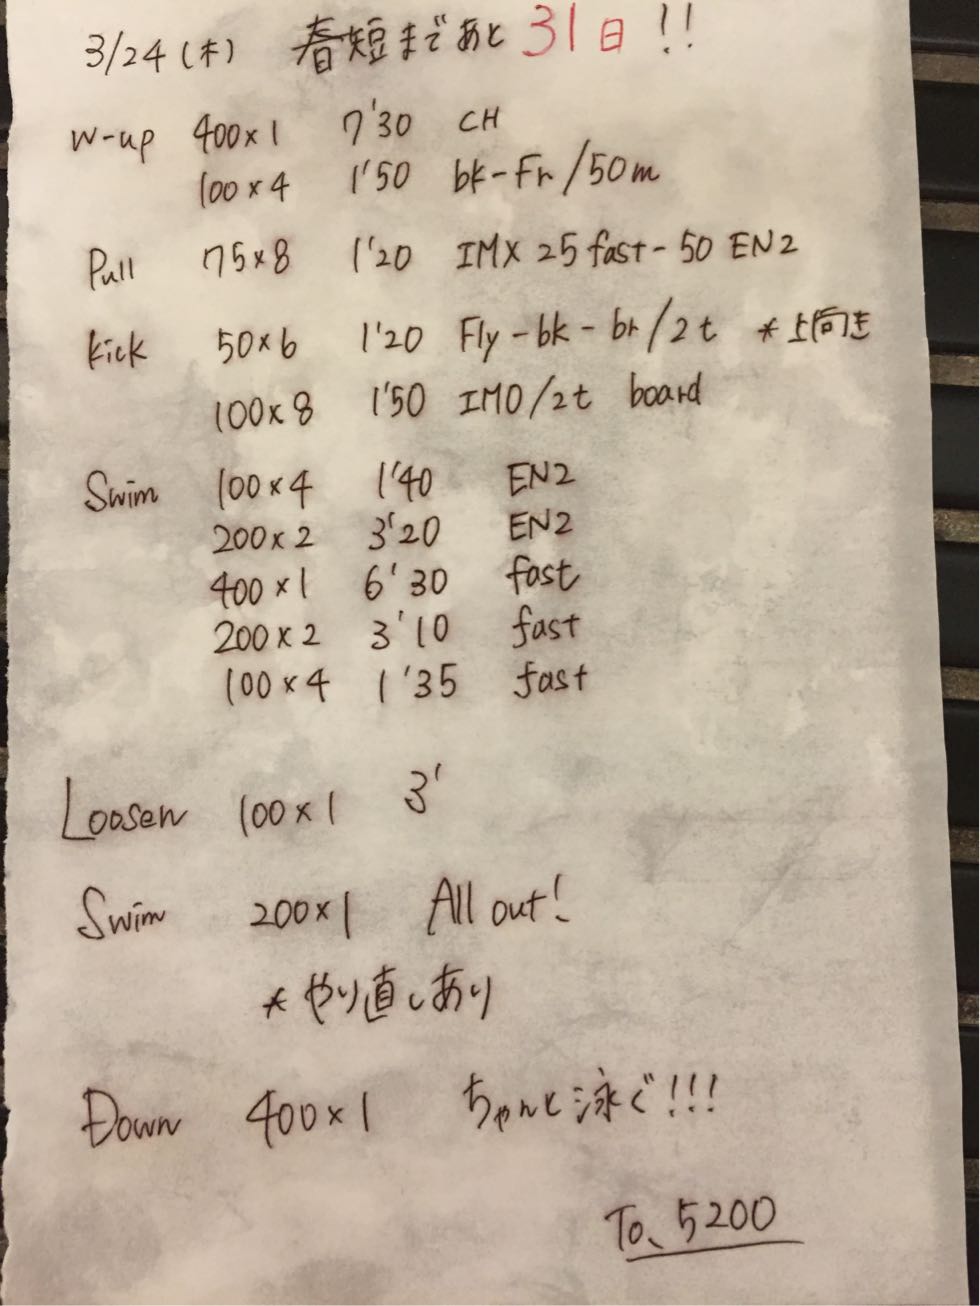 3/24 (木) 春短まであと 31日 !!
W-up 400×1 7'30 CH
100×4 1'50 bk-Fr/50m
Pull 75×8 1'20 IMX 25 fast - 50 EN2
kick 50×6 1'20 Fly-bk-br/2t *上向き
100×8 1'50 IMO/2t board
Swim 100×4 1'40 EN2
200×2 3'20 EN2
400×1 6'30 fast
200×2 3'10 fast
100×4 1'35 fast
Loosen 100×1 3'
Swim 200×1 All out!
*やり直しあり
Down 400×1 ちゃんと泳ぐ!!!
To、5200